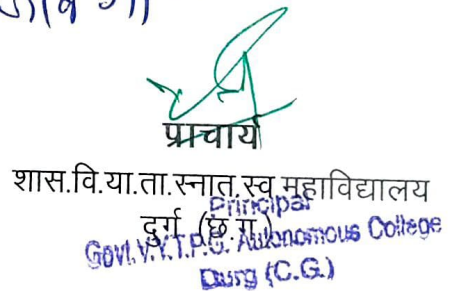 प्राचार्य
शास.वि.या.ता.स्नात.स्व.महाविद्यालय
दुर्ग (छ.ग.)
Principal
Govt. V.Y.T.P.G. Autonomous College
Durg (C.G.)